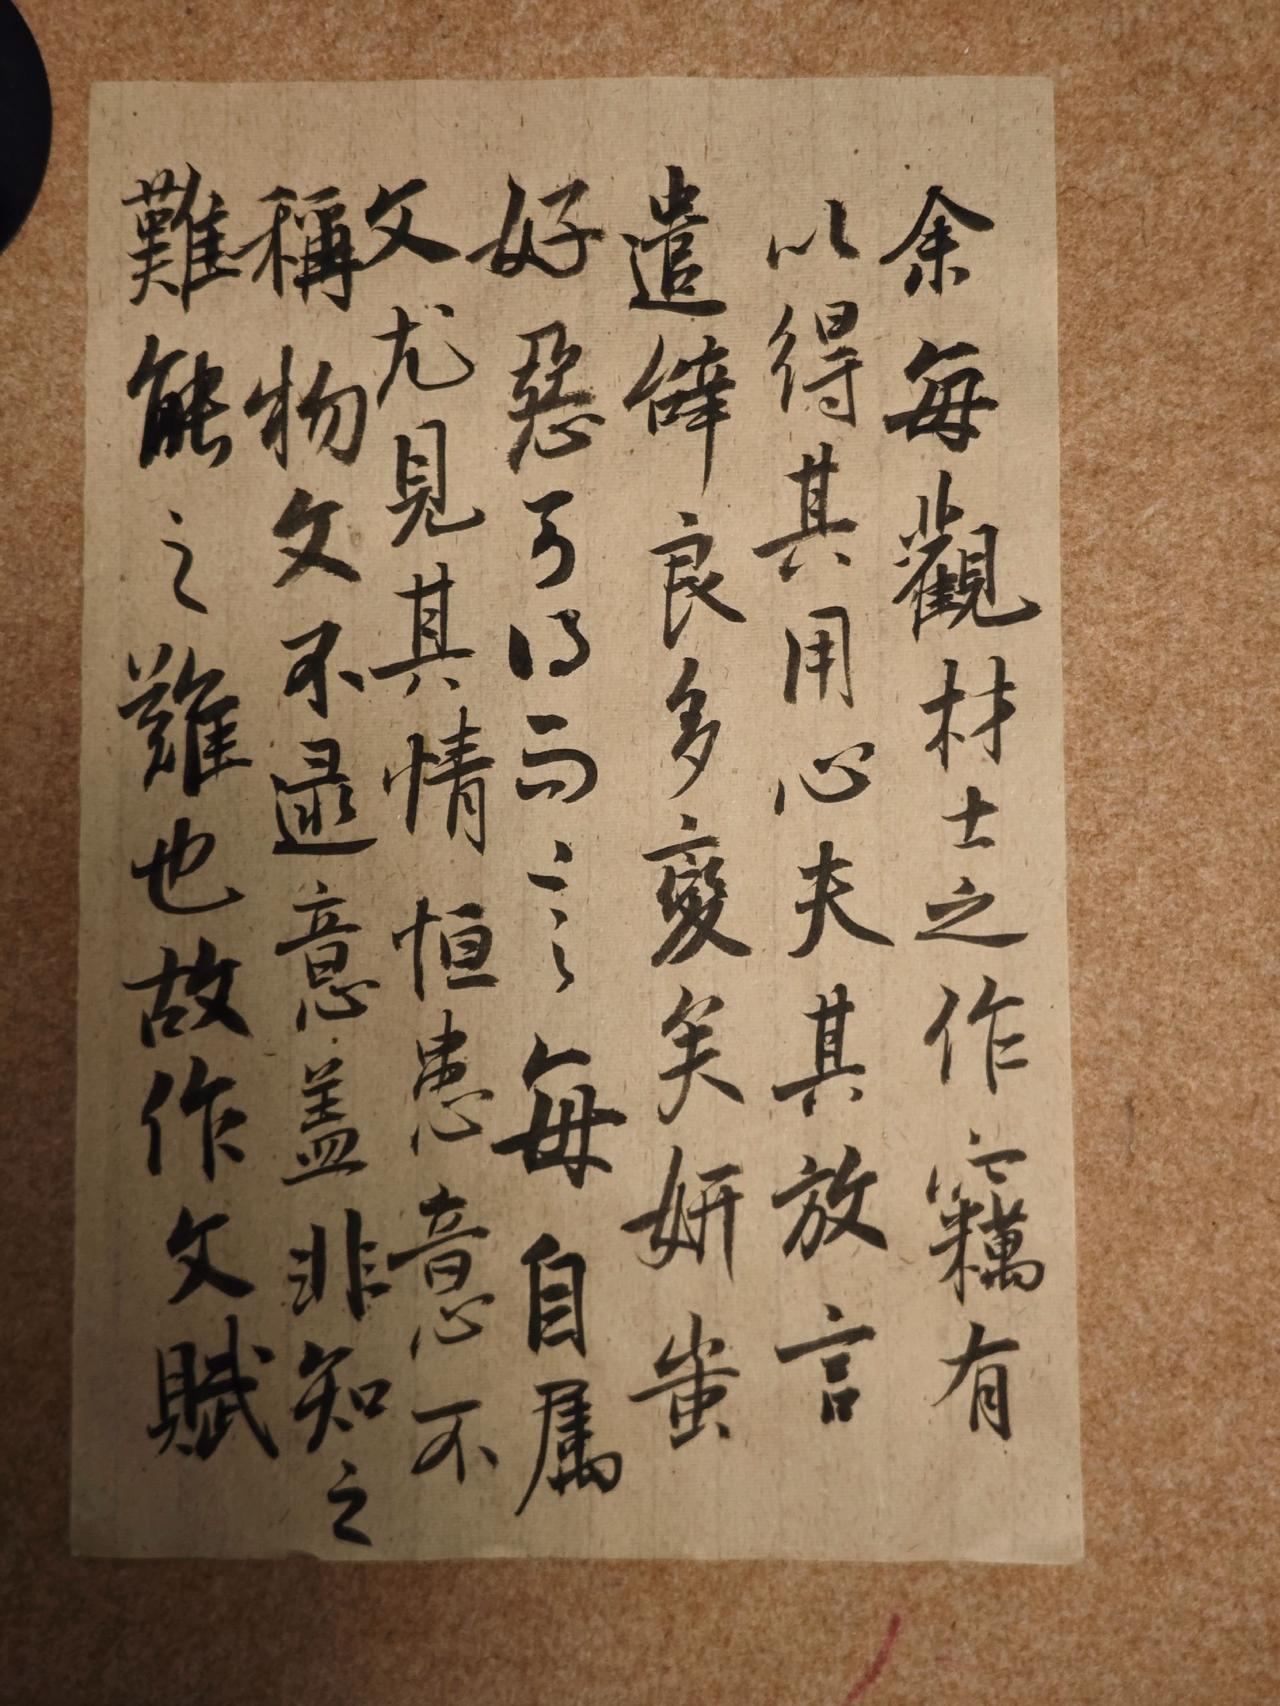 余每觀材士之作竊有
以得其用心夫其放言
遣辝良多變矣妍蚩
好惡可得而言每自属
文尤見其情恒患意不
稱物文不逮意盖非知之
難能之難也故作文賦